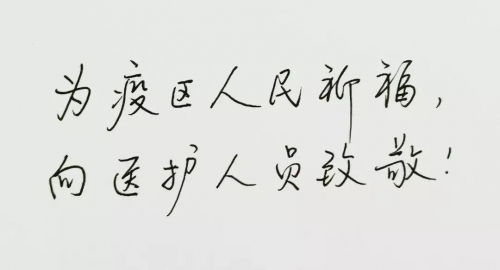 为疫区人民祈福，
向医护人员致敬！